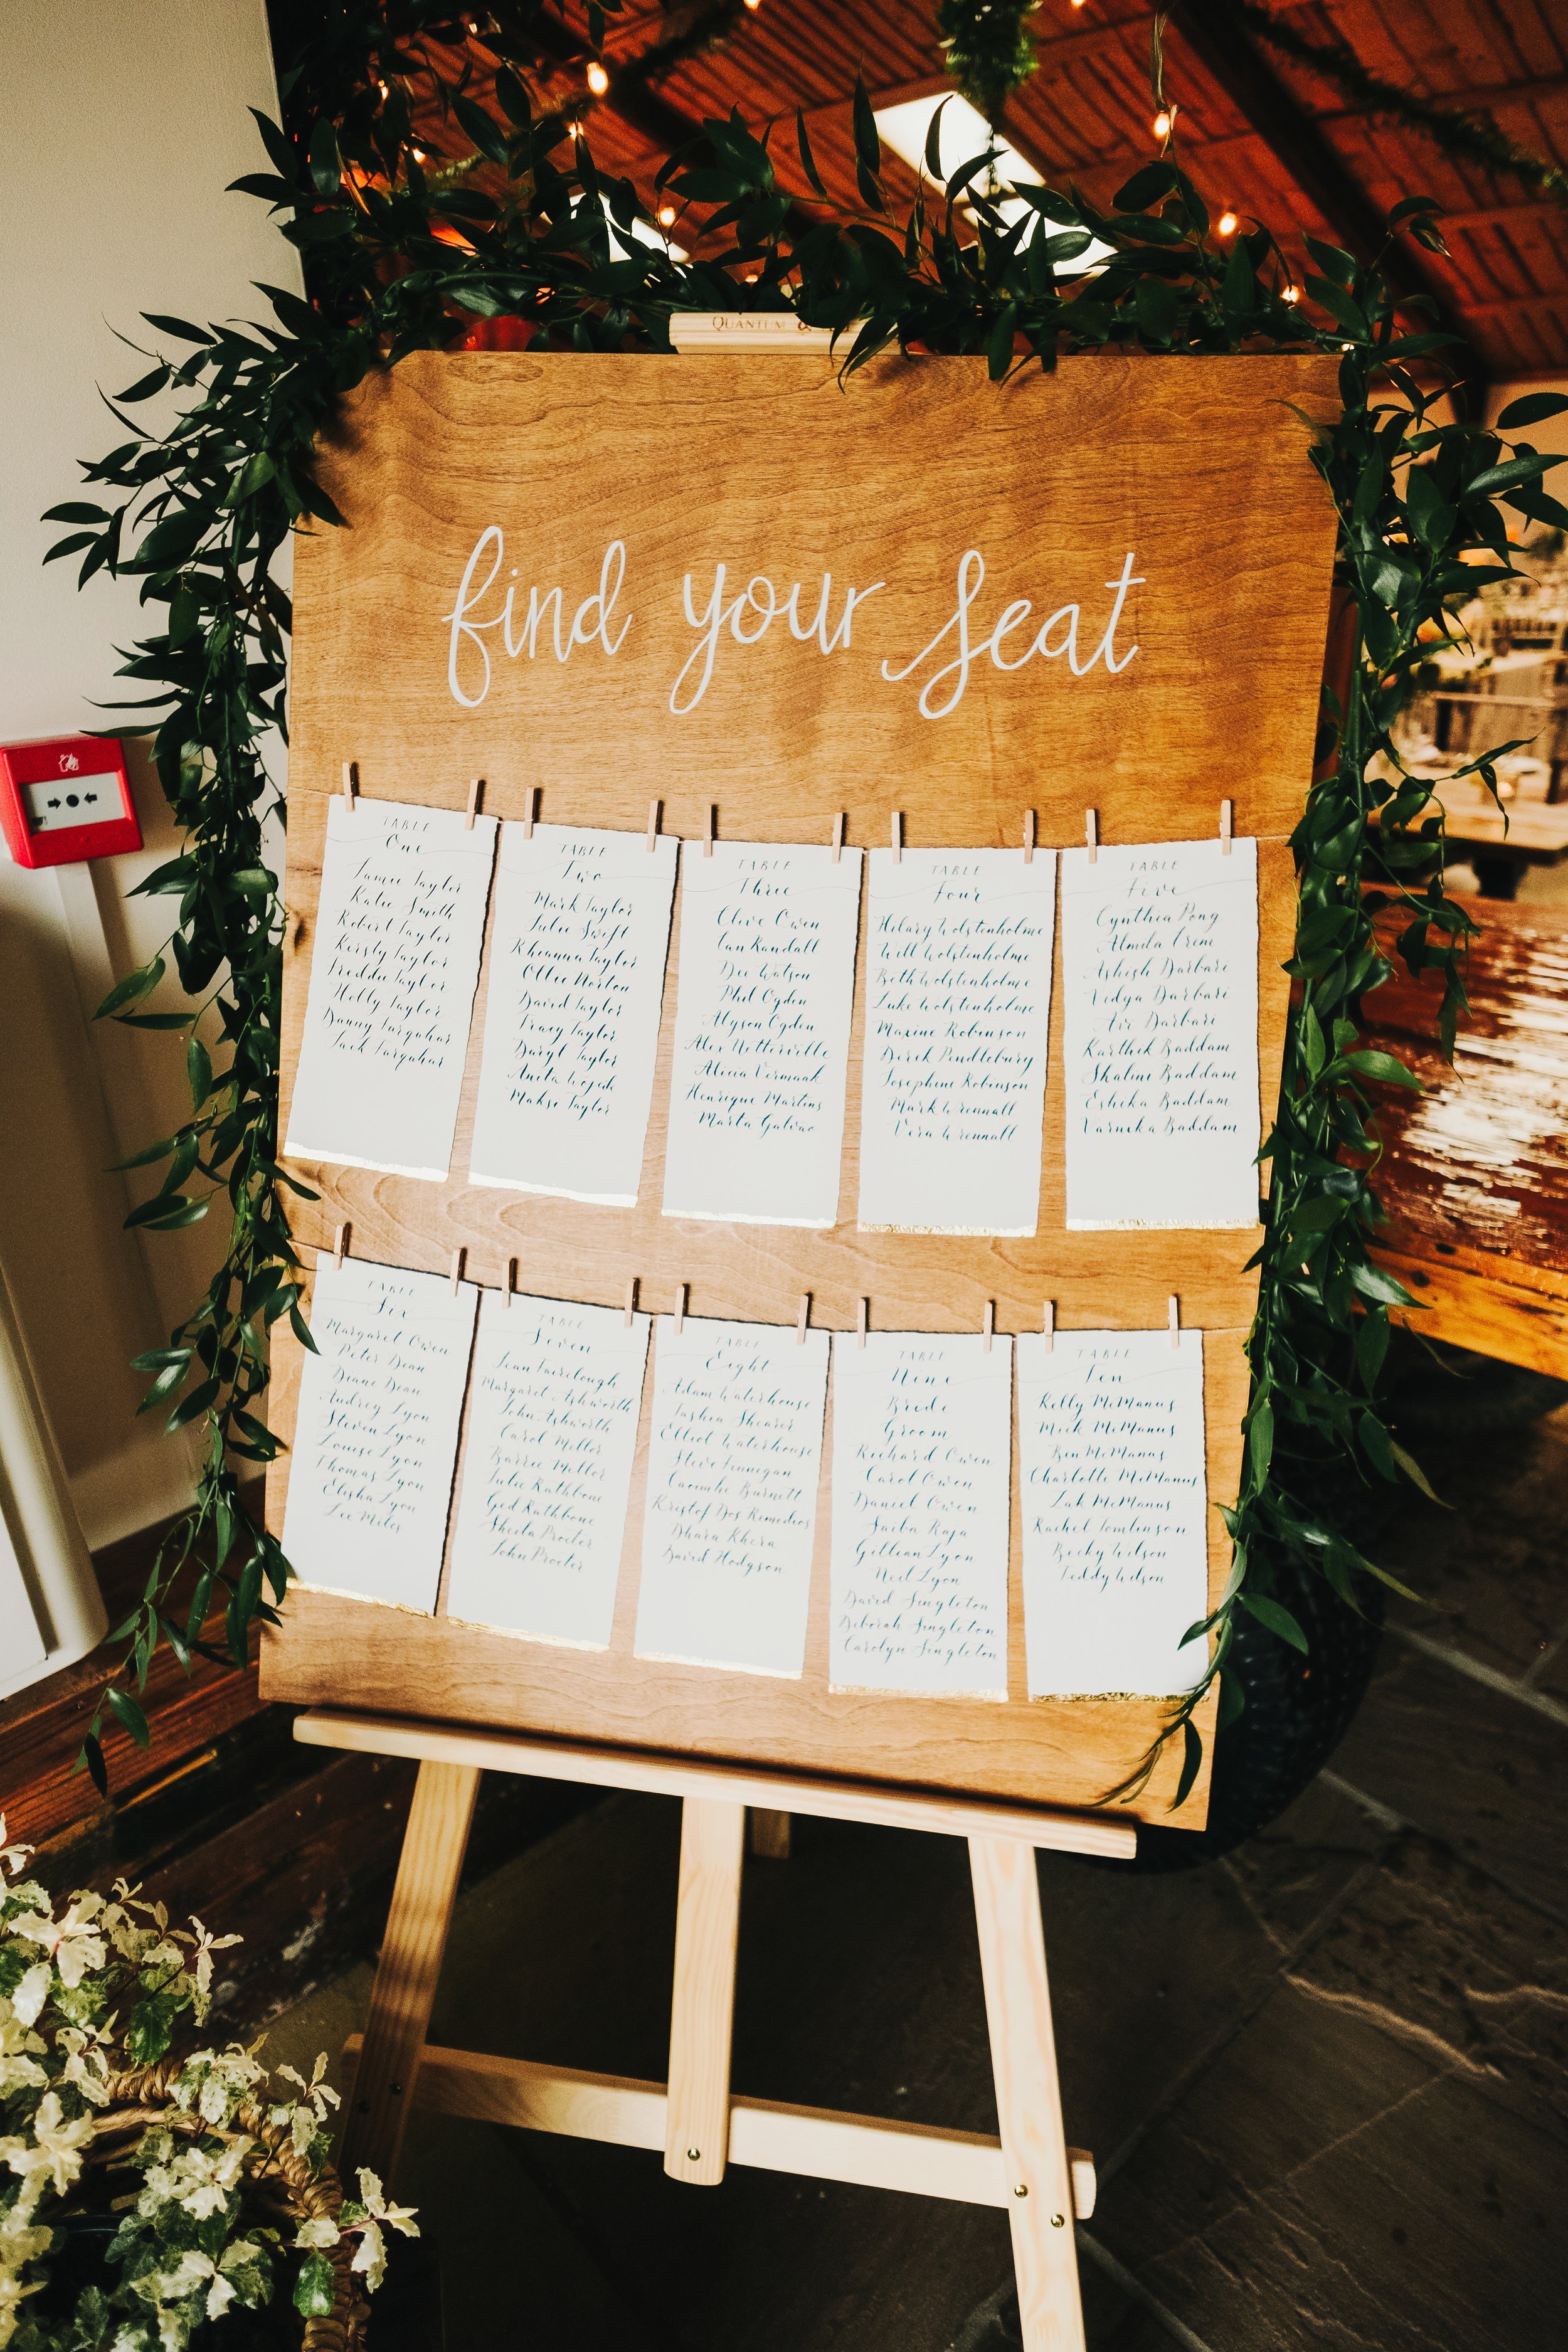 QUANTUM &
find your seat
TABLE
One
Jamie Taylor
Katie Smith
Robert Taylor
Kirsty Taylor
Freddie Taylor
Holly Taylor
Danny Farquhar
Jack Farquhar
TABLE
Two
Mark Taylor
Julie Swift
Rheanna Taylor
Ollie Norton
David Taylor
Tracy Taylor
Daryl Taylor
Anita Wojcik
Makso Taylor
TABLE
Three
Clive Owen
Ian Randall
Dee Watson
Phil Ogden
Alyson Ogden
Alex Netterville
Alicia Vermaak
Henrique Martins
Marta Galvao
TABLE
Four
Hilary Wolstenholme
Will Wolstenholme
Beth Wolstenholme
Luke Wolstenholme
Maxine Robinson
Derek Pendlebury
Josephine Robinson
Mark Wrennall
Vera Wrennall
TABLE
Five
Cynthia Pong
Almila
Ashish Darbari
Vidya Darbari
Darbari
Karthik Baddam
Shalini Baddam
Eshika Baddam
Varnika Baddam
TABLE
Six
Margaret Owen
Peter Dean
Diane Dean
Audrey Lyon
Steven Lyon
Louise Lyon
Thomas Lyon
Elisha Lyon
Lee Miles
TABLE
Seven
Jean Fairclough
Margaret Ashworth
John Ashworth
Carol Mellor
Barrie Mellor
Julie Rathbone
Ged Rathbone
Sheila Procter
John Procter
TABLE
Eight
Adam Waterhouse
Tashia Shearer
Elliot Waterhouse
Steve Finnegan
Caoimhe Burnett
Kristof Dos Remedios
Dhara Khera
David Hodgson
TABLE
Nine
Bride
Groom
Richard Owen
Carol Owen
Daniel Owen
Saiba Raja
Gillian Lyon
Neil Lyon
David Singleton
Deborah Singleton
Carolyn Singleton
TABLE
Ten
Kelly McManus
Mick McManus
Ben McManus
Charlotte McManus
Zak McManus
Rachel Tomlinson
Becky Wilson
Teddy Wilson